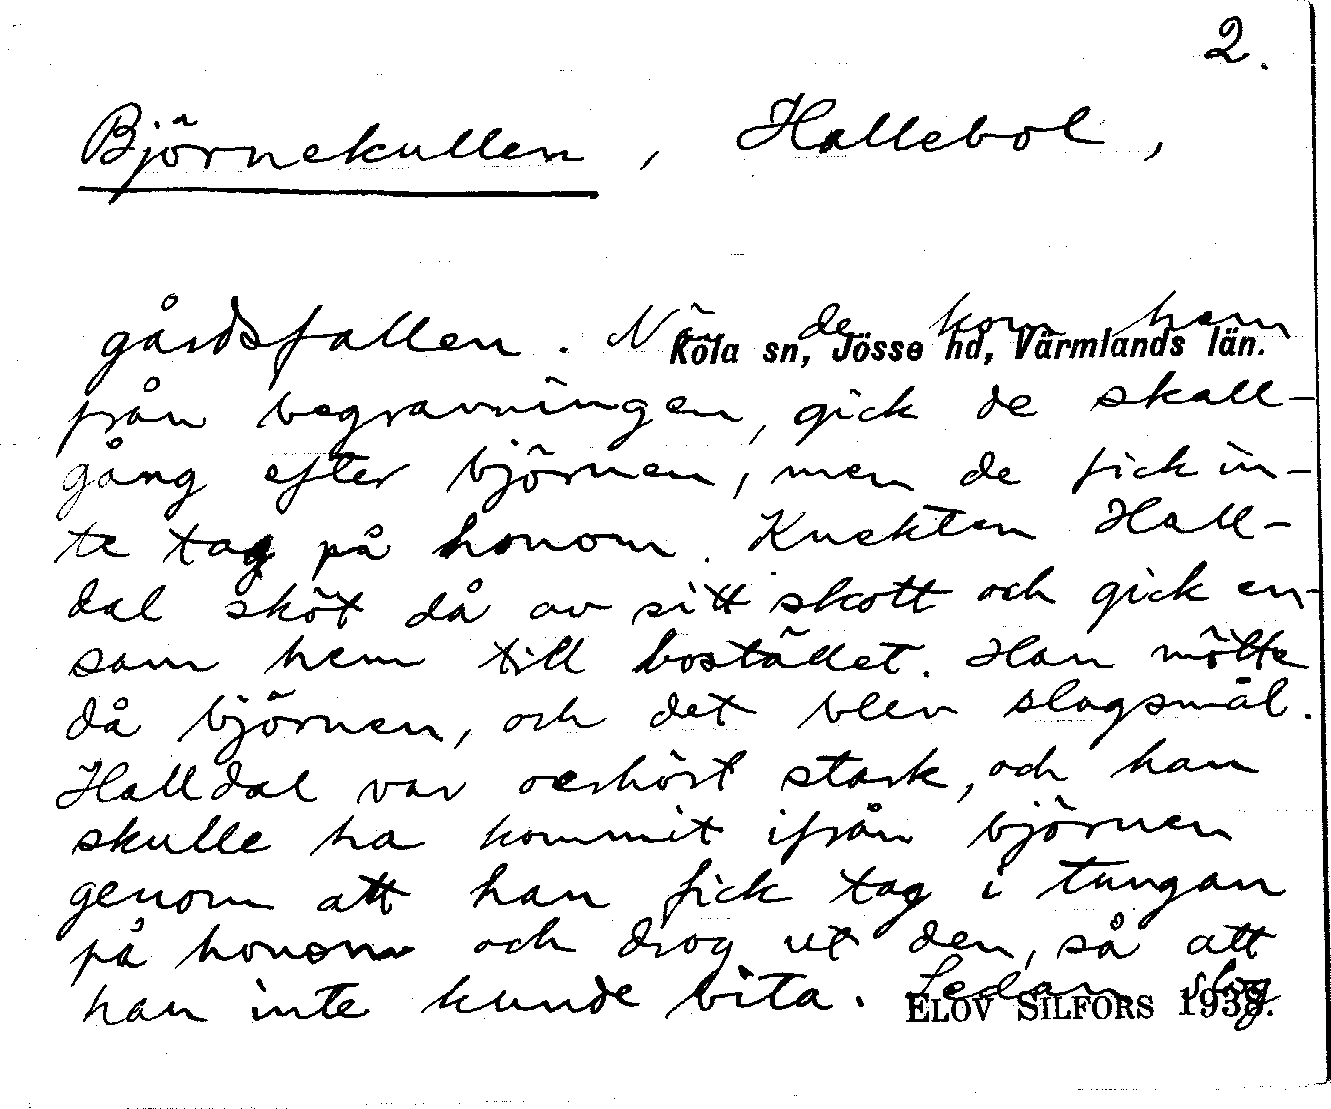 2.
Björnekullen, Hallebol,
gårdsfallen. När de kom hem
Köla sn, Jösse hd, Värmlands län.
från begravningen, gick de skall-
gång efter björnen, men de fick in-
te tag på honom. Knekten Hall-
dal sköt då av sitt skott och gick en-
sam hem till bostället. Han mötte
då björnen, och det blev slagsmål.
Halldal var oerhört stark, och han
skulle ha kommit ifrån björnen
genom att han fick tag i tungan
på honom och drog ut den, så att
han inte kunde bita. Sedan slog
ELOV SILFORS 1938.